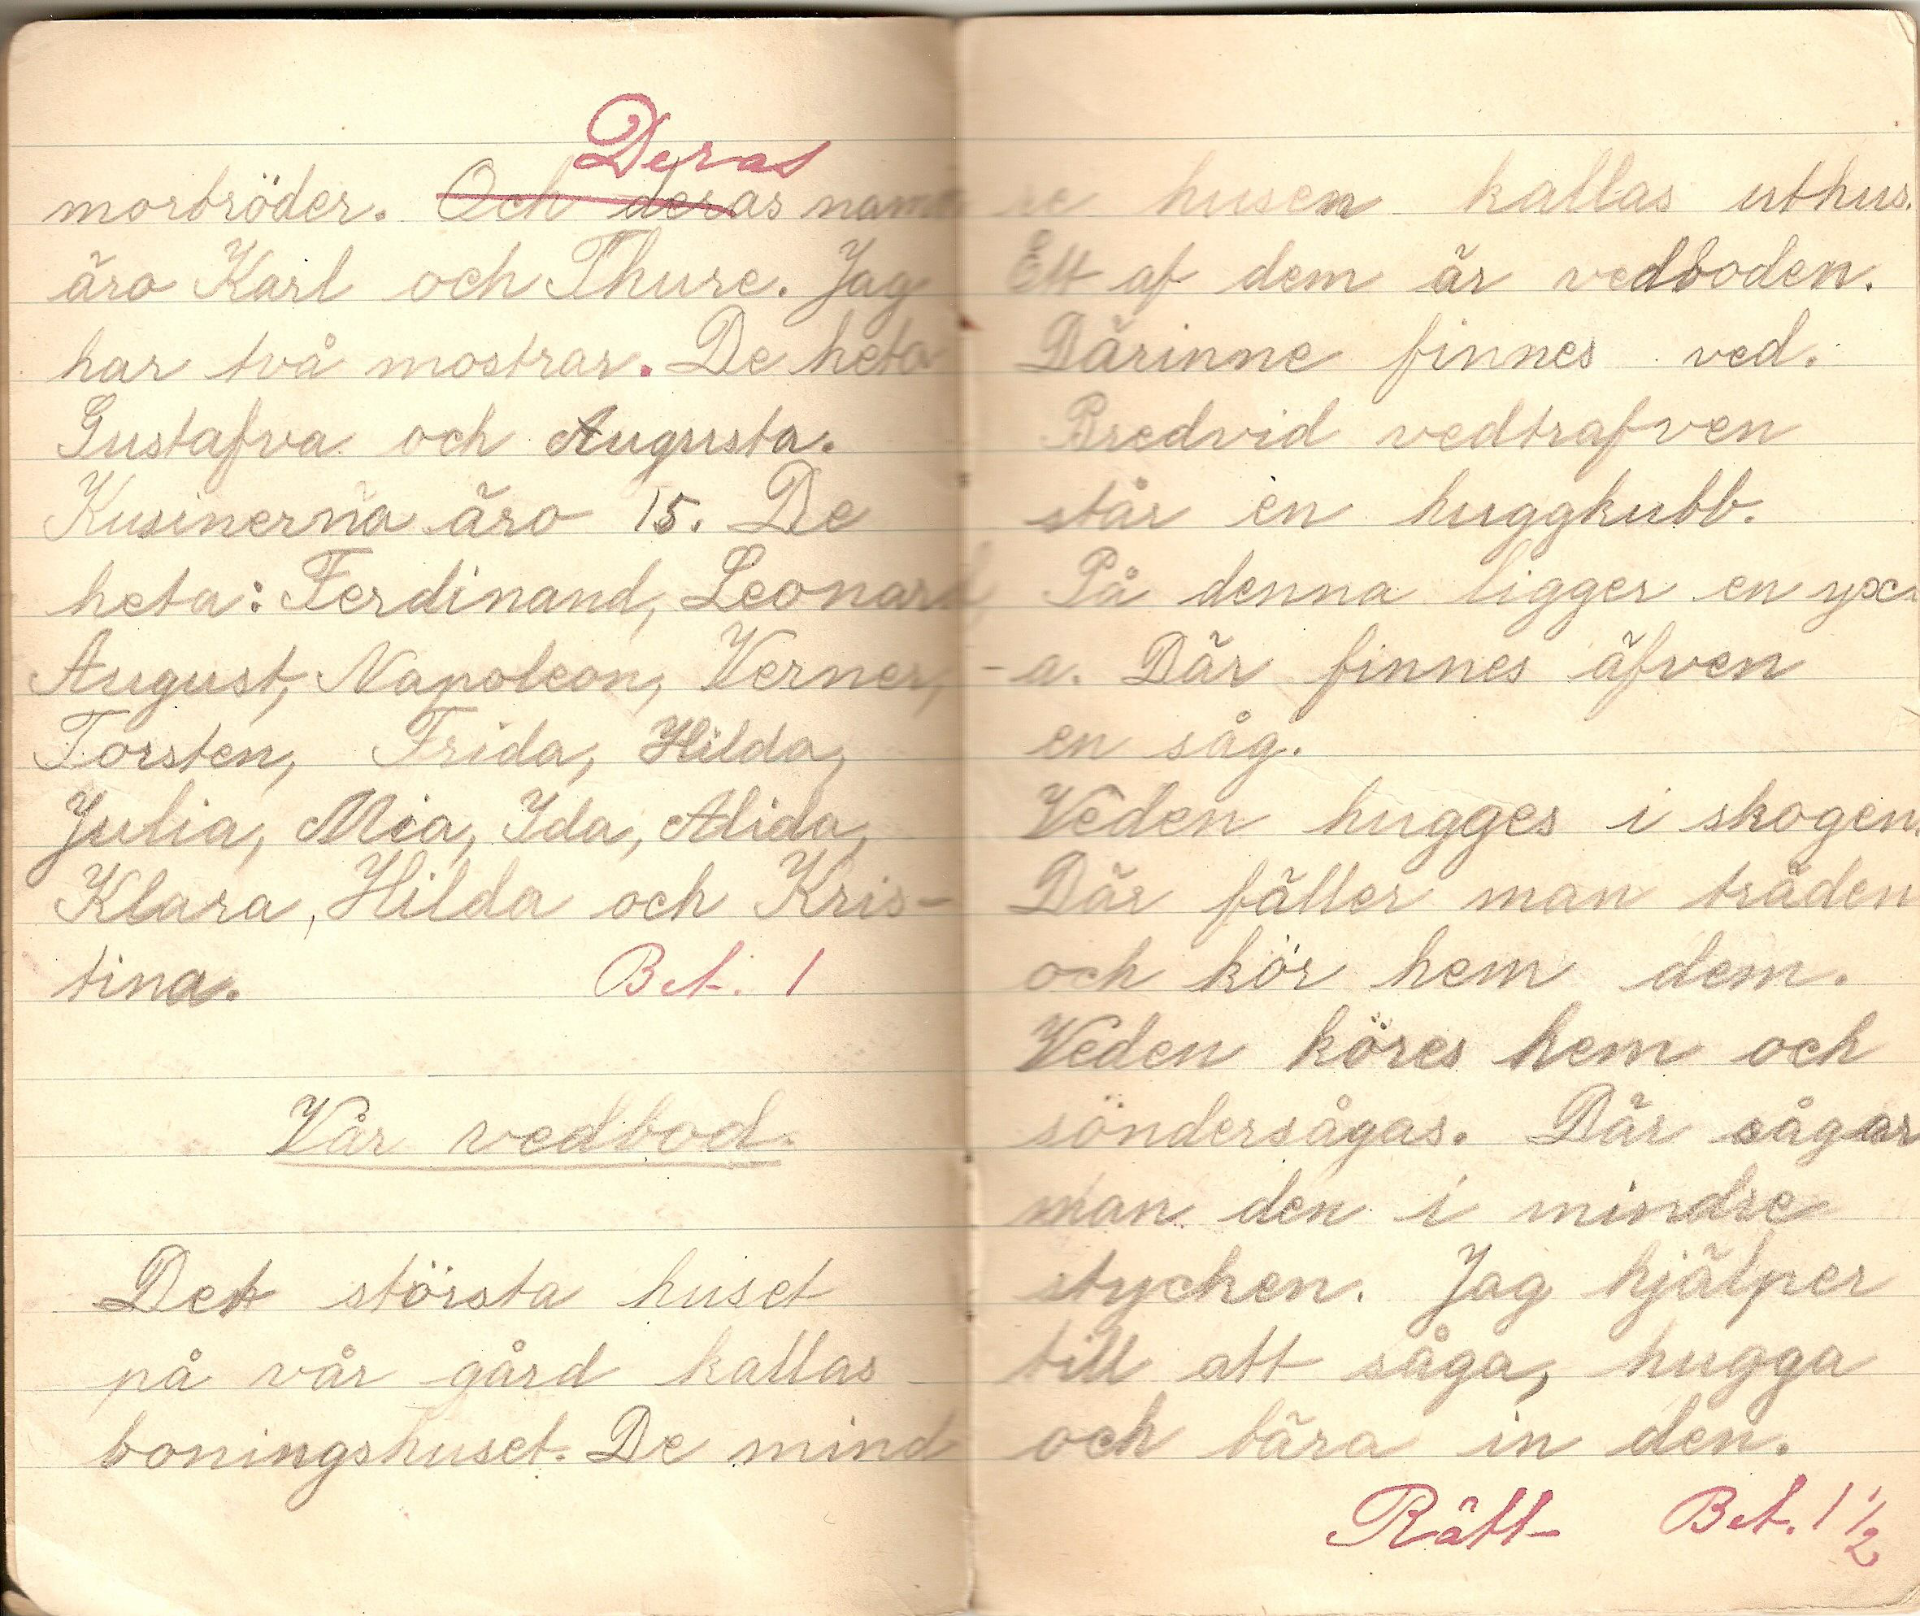 Deras
morbröder. Och deras namn
äro Karl och Thure. Jag
har två mostrar. De heta
Gustafva och Augusta.
Kusinerna äro 15. De
heta: Ferdinand, Leonard
August, Napoleon, Verner,
Torsten, Frida, Hilda,
Julia, Mia, Ida, Alida,
Klara, Hilda och Kris-
tina. Bet. 1
Vår vedbod.
Det största huset
på vår gård kallas
boningshuset. De mind
re husen kallas uthus.
Ett af dem är vedboden.
Därinne finnes ved.
Bredvid vedtrafven
står en huggkubb.
På denna ligger en yx-
-a. Där finnes äfven
en såg.
Veden hugges i skogen.
Där fäller man träden
och kör hem dem.
Veden köres hem och
söndersågas. Där sågar
man den i mindre
stycken. Jag hjälper
till att såga, hugga
och bära in den.
Rätt Bet. 1 1/2